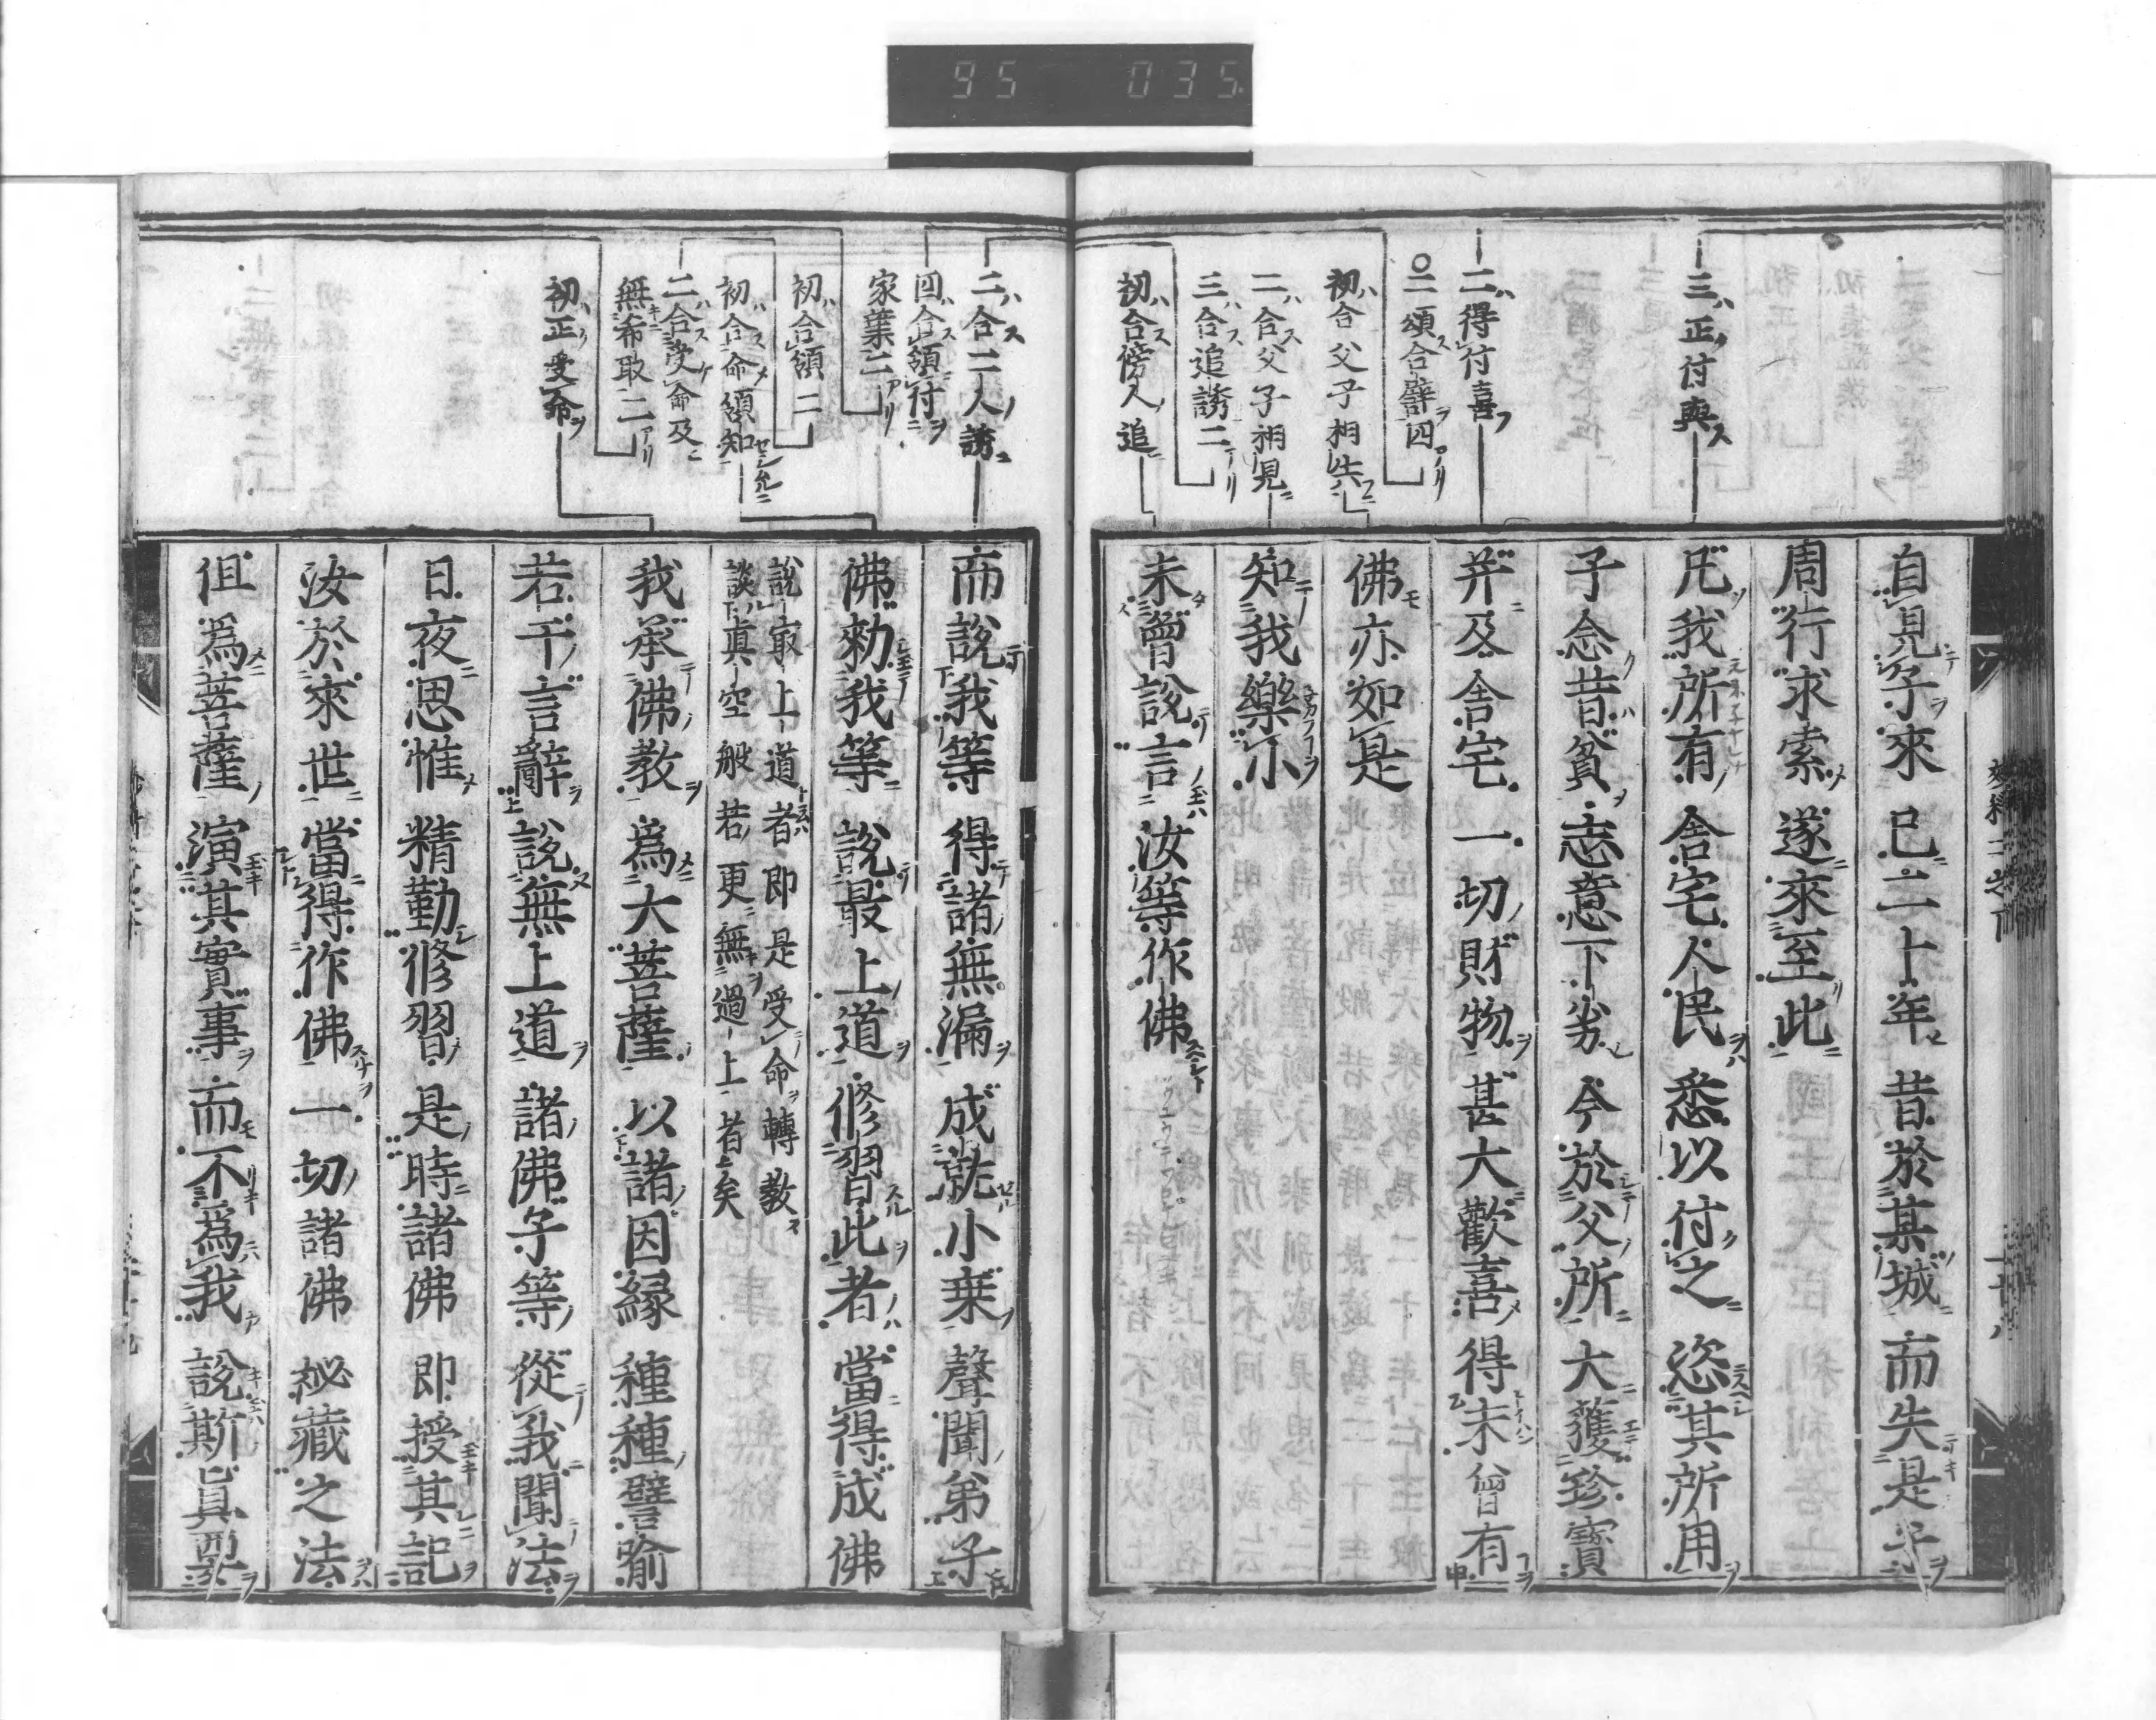 95 035
三正付與
二得付喜
二頌合譬四
初合父子相失
二合父子相見
三合追誘二
初合傍人追
自見子來 已二十年 昔於某城 而失是子
周行求索 遂來至此
凡我所有 舍宅人民 悉以付之 恣其所用
子念昔貧 志意下劣 今於父所 大獲珍寶
并及舍宅 一切財物 甚大歡喜 得未曾有
佛亦如是
知我樂小
未曾說言 汝等作佛
二合二人誘
四合領付
家業二
初合領二
初合命領知
二合受命及
無希取二
初正受命
而說我等 得諸無漏 成就小乗 聲聞弟子
佛勅我等 說最上道 修習此者 當得成佛
說最上道者即是受命轉教
談真空般若更無過上者矣
我承佛教 為大菩薩 以諸因縁 種種譬喻
若干言辭 說無上道 諸佛子等 從我聞法
日夜思惟 精勤修習 是時諸佛 即授其記
汝於來世 當得作佛 一切諸佛 祕藏之法
但為菩薩 演其實事 而不為我 說斯真要